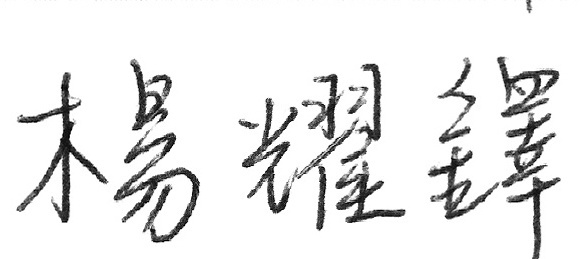 楊耀鐸